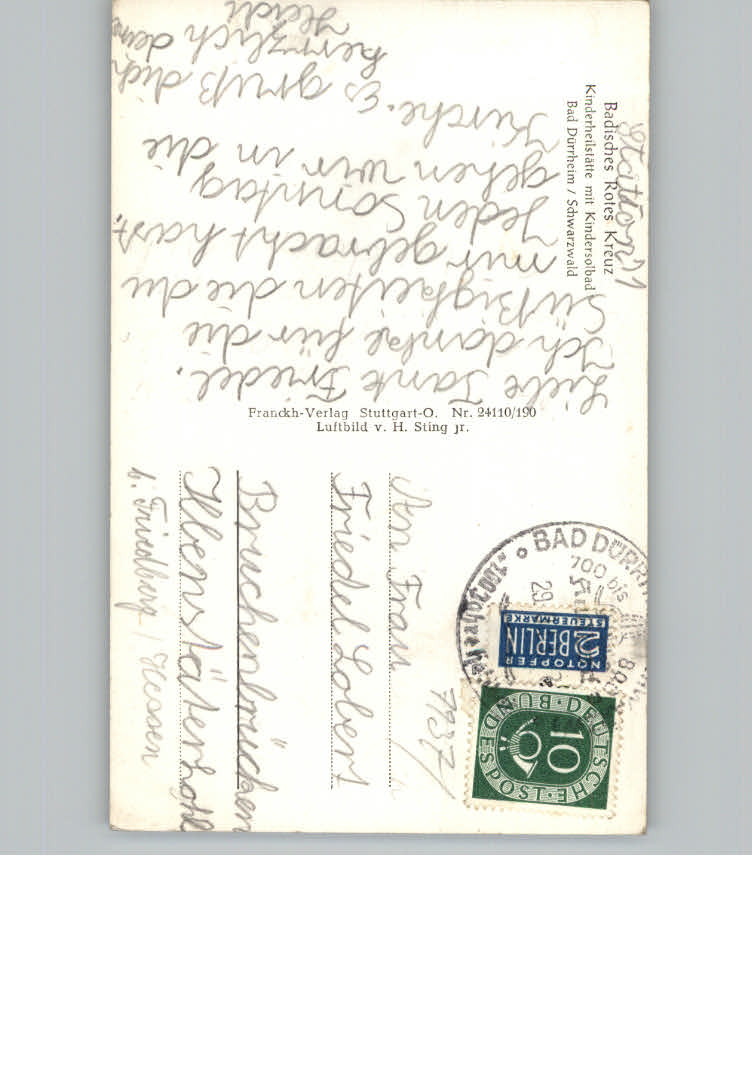 Badisches Rotes Kreuz
Kinderheilstätte mit Kindersolbad
Bad Dürrheim / Schwarzwald
Station 1
Liebe Tante Friedel.
Ich danke für die
Süßigkeiten die du
mir gebracht hast.
Jeden Sonntag
gehen wir in die
Kirche. Es grüß dich
herzlich deine
Heidi
Franckh-Verlag Stuttgart-O. Nr. 24110/190
Luftbild v. H. Sting jr.
BAD DÜRRH
700 bis 80
29.
NOTOPFER
2 BERLIN
STEUERMARKE
DEUTSCHE BUNDESPOST
10
7937
An Frau
Friedel Lobert
Bruchenbrücken
Ilbenstäterhohl
b. Friedberg / Hessen